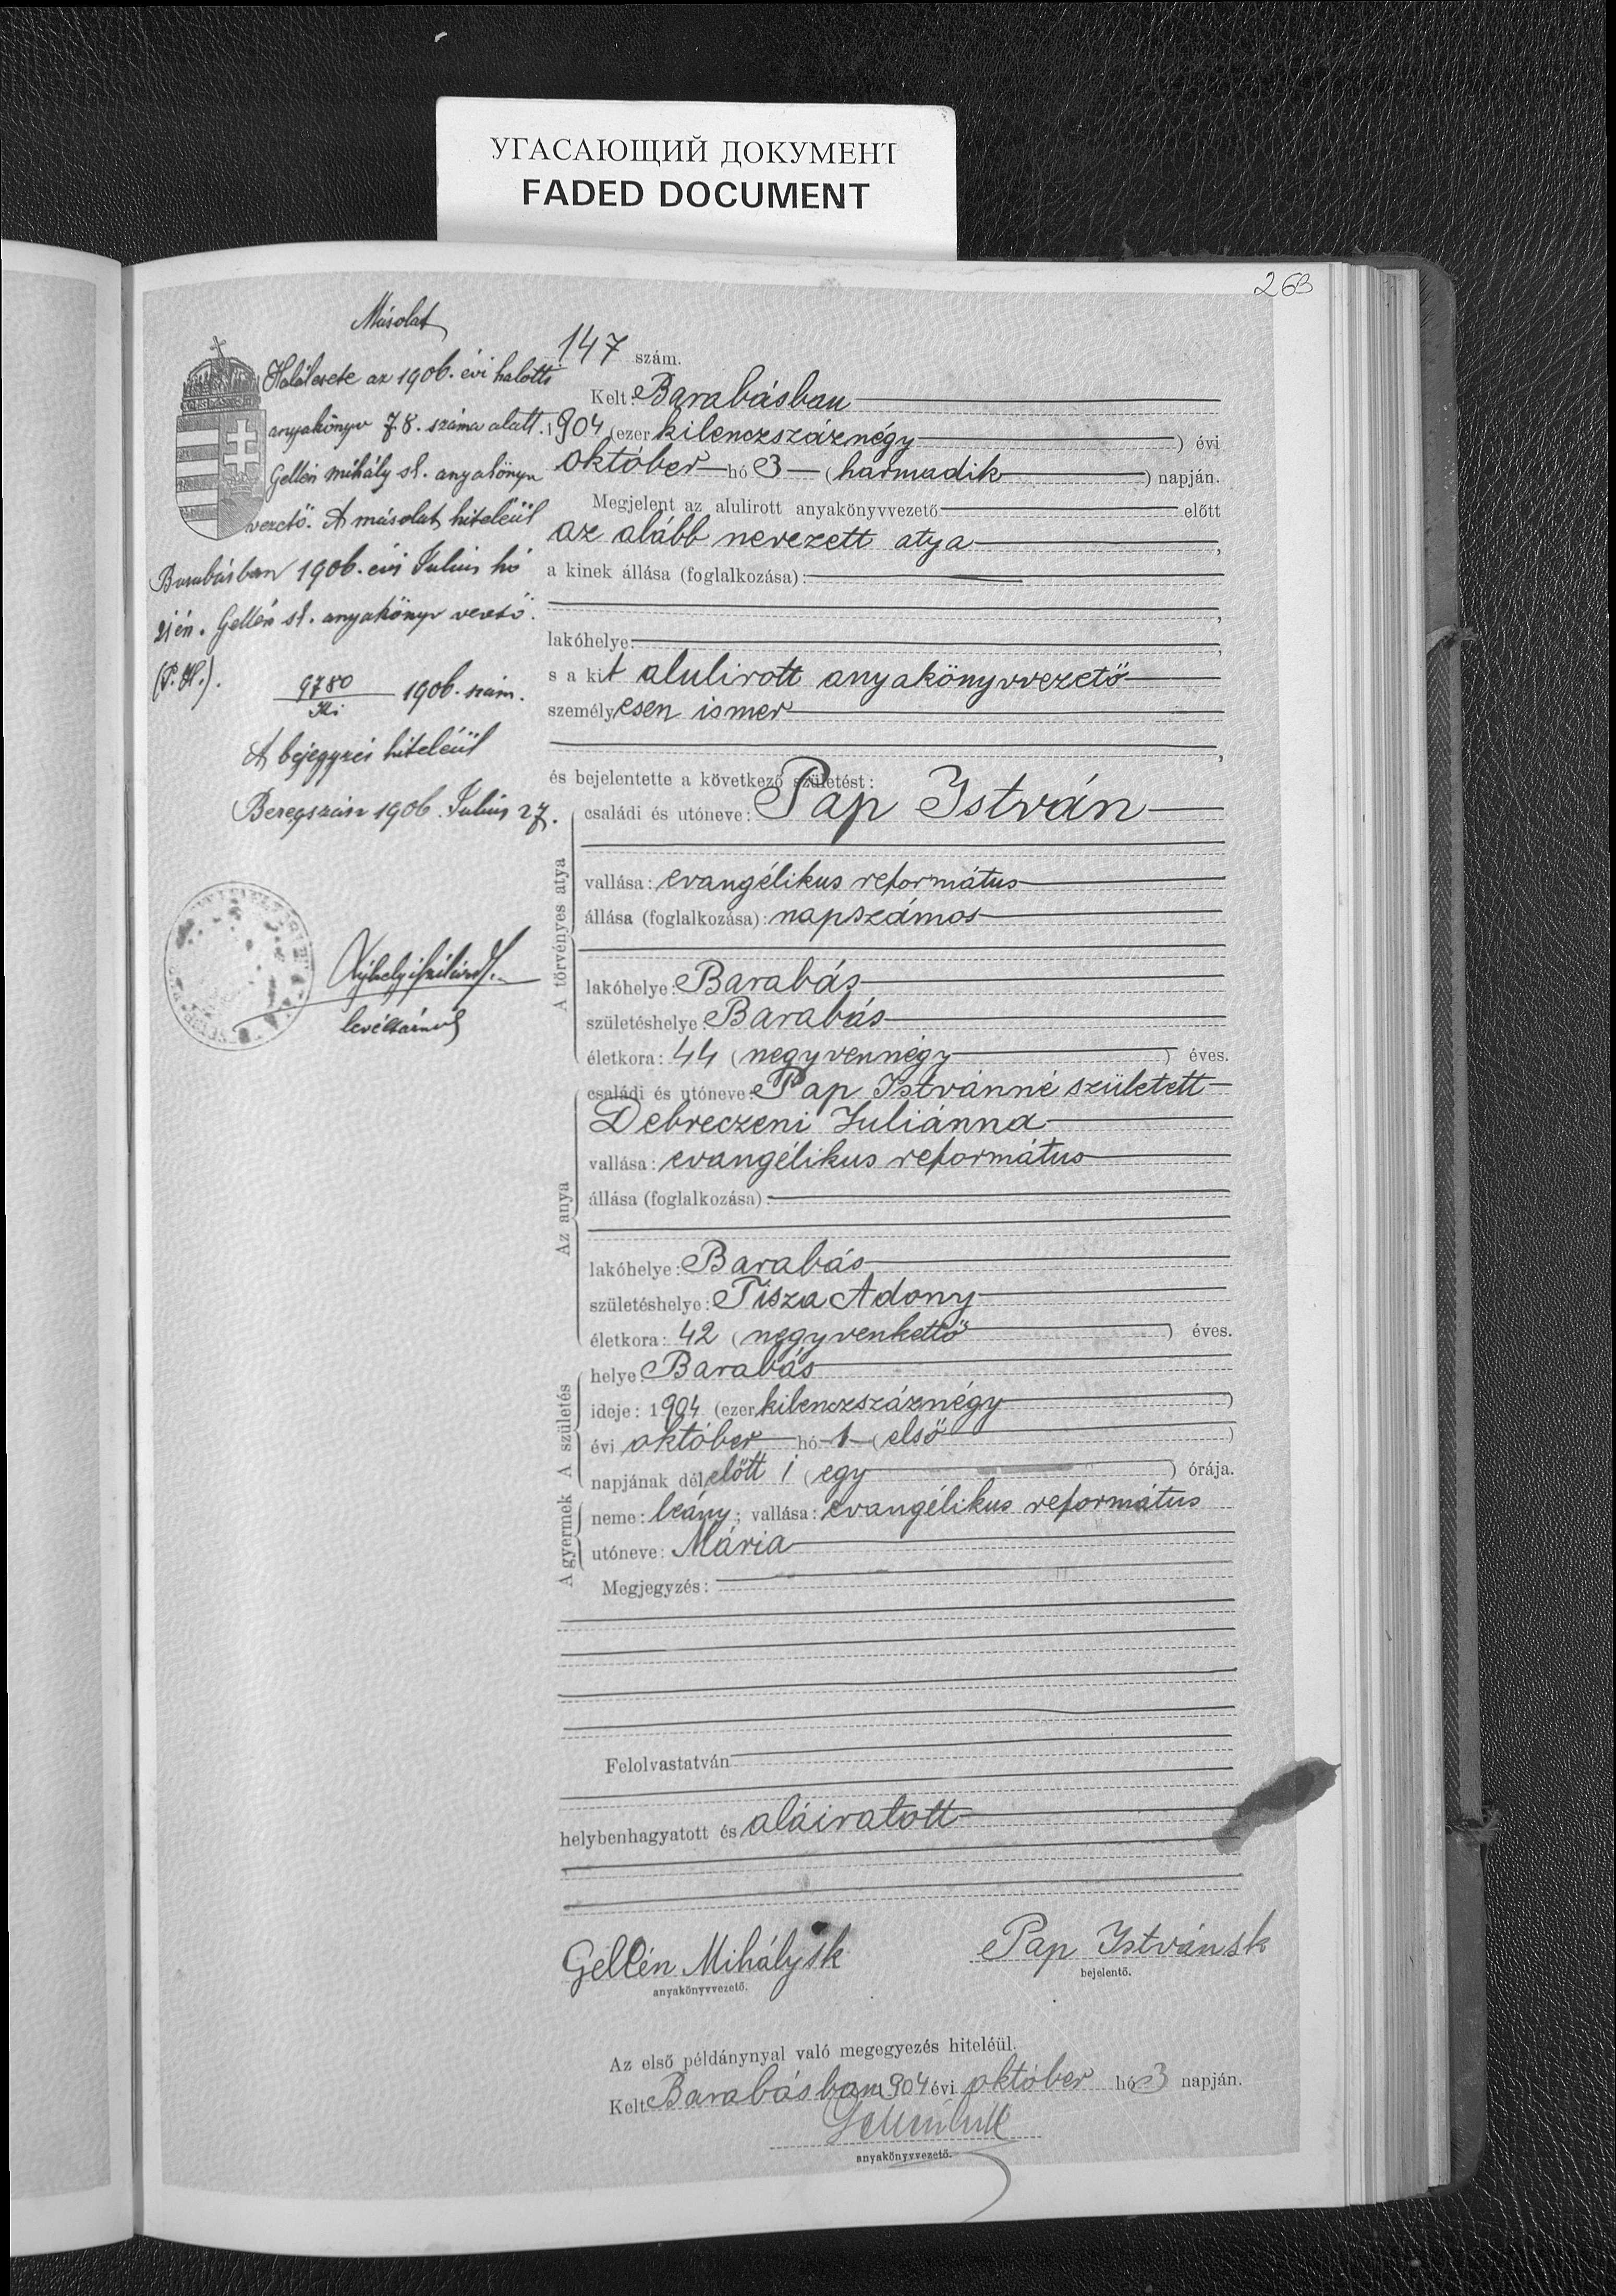 УГАСАЮЩИЙ ДОКУМЕНТ
FADED DOCUMENT
263
Másolat
Halálesete az 1906. évi halotti
anyakönyv 78. száma alatt.
Gellén Mihály sk. anyakönyv
vezető. A másolat hiteléül
Barabásban 1906. évi Julius hó
21én. Gellén sk. anyakönyv vezető.
(P.H.).
9780
1906. szám.
A bejegyzés hiteléül
Beregszász 1906. Julius 27.
levéltárnok
147 szám.
Kelt: Barabásban
1904 (ezer kilenczszáznégy) évi
október hó 3 (harmadik) napján.
Megjelent az alulirott anyakönyvvezető előtt
az alább nevezett atya,
a kinek állása (foglalkozása):
,
lakóhelye: ,
s a kit alulirott anyakönyvvezető
személyesen ismer
,
és bejelentette a következő születést:
A törvényes atya
családi és utóneve: Pap István
vallása: evangélikus református
állása (foglalkozása): napszámos
lakóhelye: Barabás
születéshelye: Barabás
életkora: 44 (negyvennégy) éves.
Az anya
családi és utóneve: Pap Istvánné született
Debreczeni Juliánna
vallása: evangélikus református
állása (foglalkozása):
lakóhelye: Barabás
születéshelye: Tisza Adony
életkora: 42 (negyvenkettő) éves.
A születés
helye: Barabás
ideje: 1904 (ezer kilenczszáznégy)
évi október hó 1 (első)
napjának délelőtt 1 (egy) órája.
A gyermek
neme: leány; vallása: evangélikus református
utóneve: Mária
Megjegyzés:
Felolvastatván
helybenhagyatott és aláiratott
Gellén Mihály sk
anyakönyvvezető.
Pap István sk
bejelentő.
Az első példánynyal való megegyezés hiteléül.
Kelt Barabásban 1904 évi október hó 3 napján.
anyakönyvvezető.